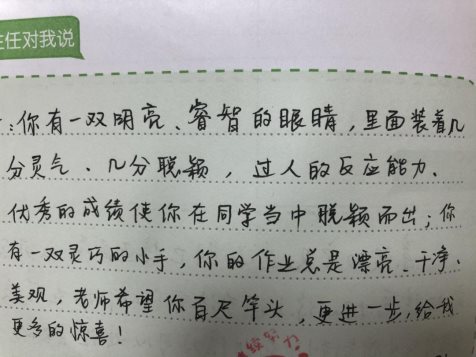 主任对我说
:你有一双明亮、睿智的眼睛，里面装着几
分灵气、几分聪颖，过人的反应能力、
优秀的成绩使你在同学当中脱颖而出；你
有一双灵巧的小手，你的作业总是漂亮、干净、
美观，老师希望你百尺竿头，更进一步，给我
更多的惊喜！
续努力